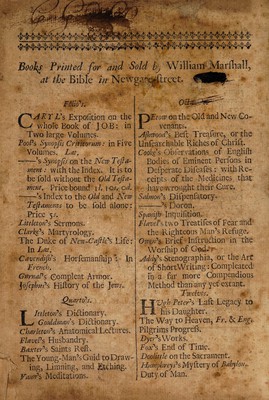 Books Printed for and Sold by William Marshall,
at the Bible in Newgate-street.
Folio's.
CARYL's Exposition on the
whole Book of JOB: in
Two large Volumes.
Pool's Synopsis Criticorum: in Five
Volumes. Lat.
——'s Synopsis on the New Testa-
ment: with the Index. It is to
be sold without the Old Testa-
ment, Price bound 1l. 10s.
——'s Index to the Old and New
Testaments to be sold alone:
Price 5s.
Littleton's Sermons.
Clark's Martyrology.
The Duke of New-Castle's Life:
In Lat.
Cavendish's Horsemanship: In
French.
Gurnal's Compleat Armor.
Josephus's History of the Jews.
Quarto's.
Littleton's Dictionary.
Gouldman's Dictionary.
Charleton's Anatomical Lectures.
Flavel's Husbandry.
Baxter's Saints Rest.
The Young-Man's Guid to Draw-
ing, Limning, and Etching.
Meditations.
on the Old and New Co-
venants.
Best Treasure, or the
Unsearchable Riches of Christ.
Cook's Observations of English
Bodies of Eminent Persons in
Desperate Diseases: with Re-
ceipts of the Medicines that
have wrought their Cure.
Salmon's Dispensatory.
——'s Doron.
Spanish Inquisition.
two Treatises of Fear and
the Righteous Man's Refuge.
Owen's Brief Instruction in the
Worship of God.
Addy's Stenographia, or the Art
of Short Writing: Compleated
in a far more Compendious
Method than any yet extant.
Twelves.
Hugh Peter's Last Legacy to
his Daughter.
The Way to Heaven, Fr. & Eng.
Pilgrims Progress.
Dyer's Works.
Fox's End of Time.
Doolittle on the Sacrament.
Humphrey's Mystery of Babylon.
Duty of Man.